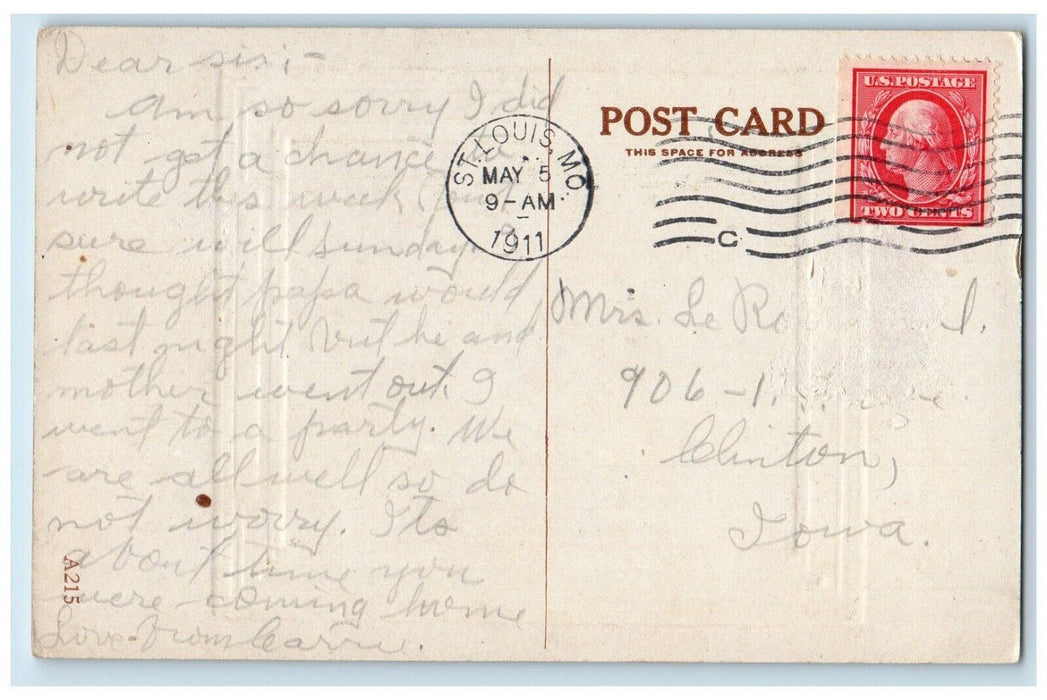 Dear sis;-
am so sorry I did
not get a chance to
write this week but
sure will sunday. I
thought papa would
last night but he and
mother went out. I
went to a party. We
are all well so do
not worry. Its
about time you
were coming home
Love from Carrie.
A215
ST. LOUIS, MO.
MAY 5
9-AM
1911
POST CARD
THIS SPACE FOR ADDRESS
C
U.S. POSTAGE
TWO CENTS
Mrs. Le
906 -
Clinton,
Iowa.